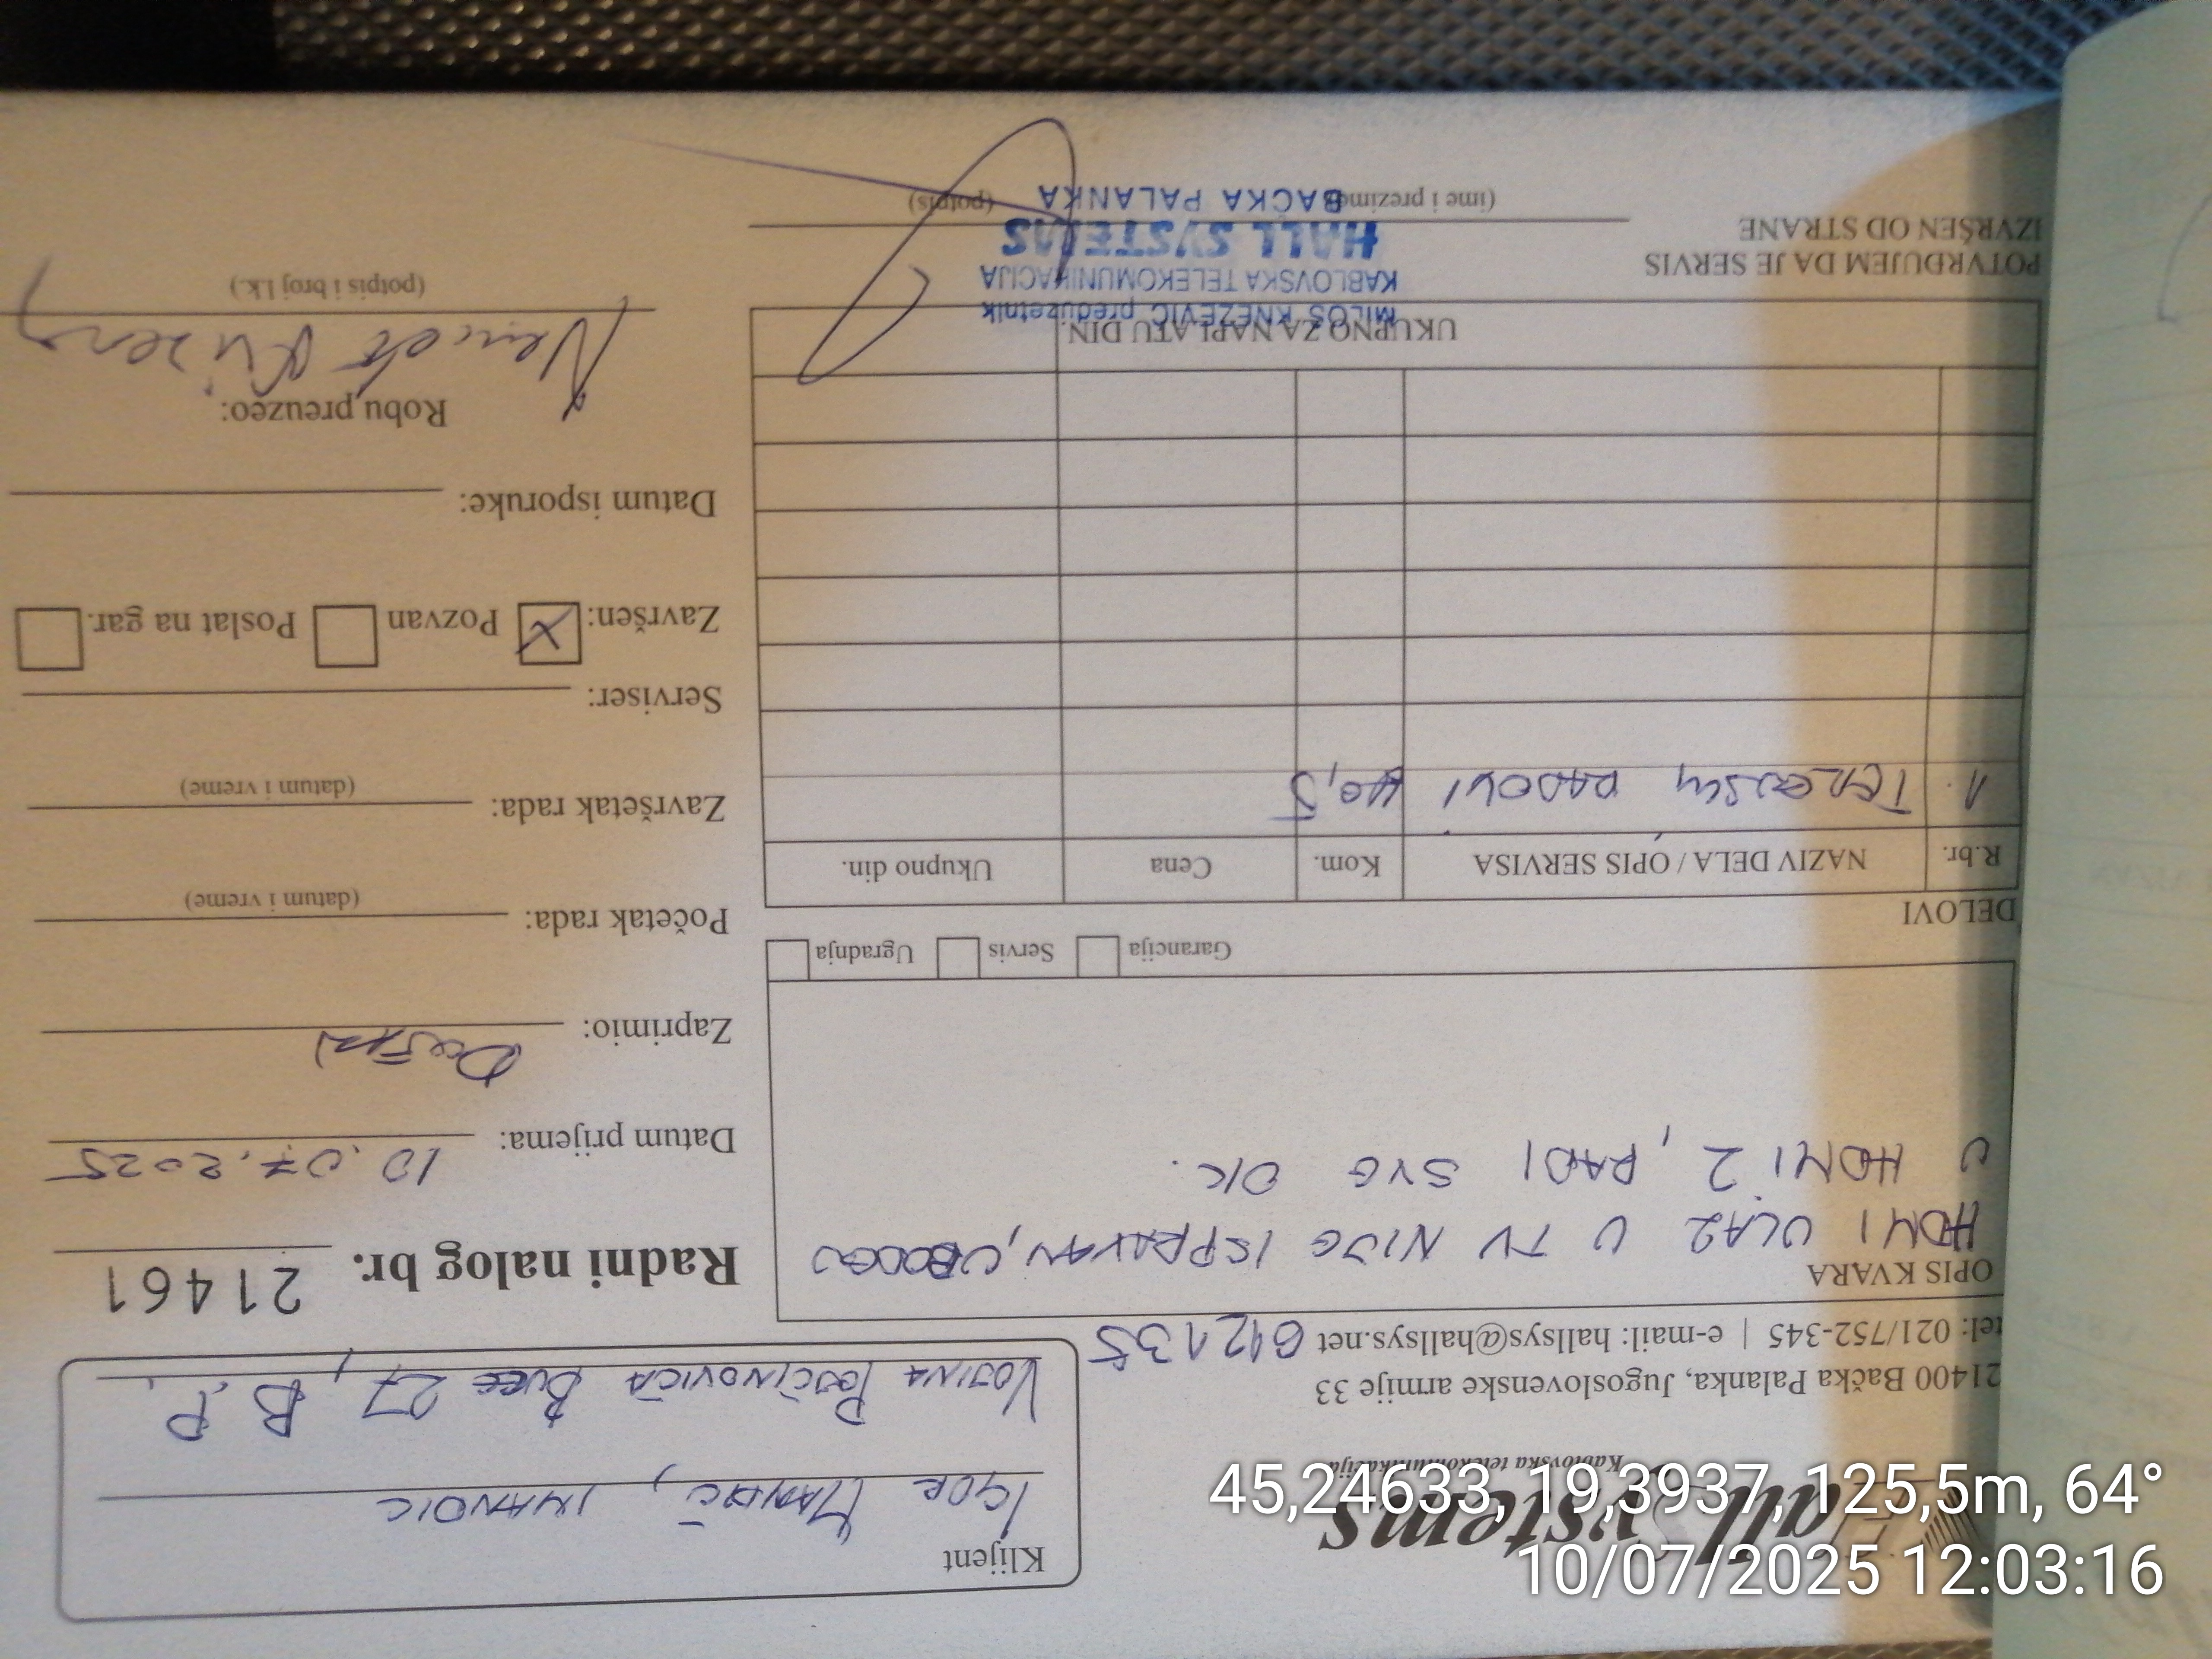 Hall Systems
Kablovska telekomunikacija
21400 Bačka Palanka, Jugoslovenske armije 33
tel: 021/752-345 | e-mail: hallsys@hallsys.net 612135
Klijent
IGOR
VOJINA BUCE 27, B.P.
Radni nalog br. 21461
OPIS KVARA
HDMI ULAZ U TV NIJE ISPRAVAN,
U HDMI 2, RADI SVE OK.
Garancija Servis Ugradnja
Datum prijema: 10.07.2025
Zaprimio:
Početak rada:
(datum i vreme)
Završetak rada:
(datum i vreme)
Serviser:
Završen: X Pozvan Poslat na gar.
Datum isporuke:
Robu preuzeo:
(potpis i broj l.k.)
DELOVI
R.br. NAZIV DELA / OPIS SERVISA Kom. Cena Ukupno din.
1. RADOVI 0,5
UKUPNO ZA NAPLATU DIN.
POTVRĐUJEM DA JE SERVIS
IZVRŠEN OD STRANE
(ime i prezime) (potpis)
MILOŠ KNEŽEVIĆ preduzetnik
KABLOVSKA TELEKOMUNIKACIJA
HALL SYSTEMS
BAČKA PALANKA
45,24633, 19,3937, 125,5m, 64°
10/07/2025 12:03:16